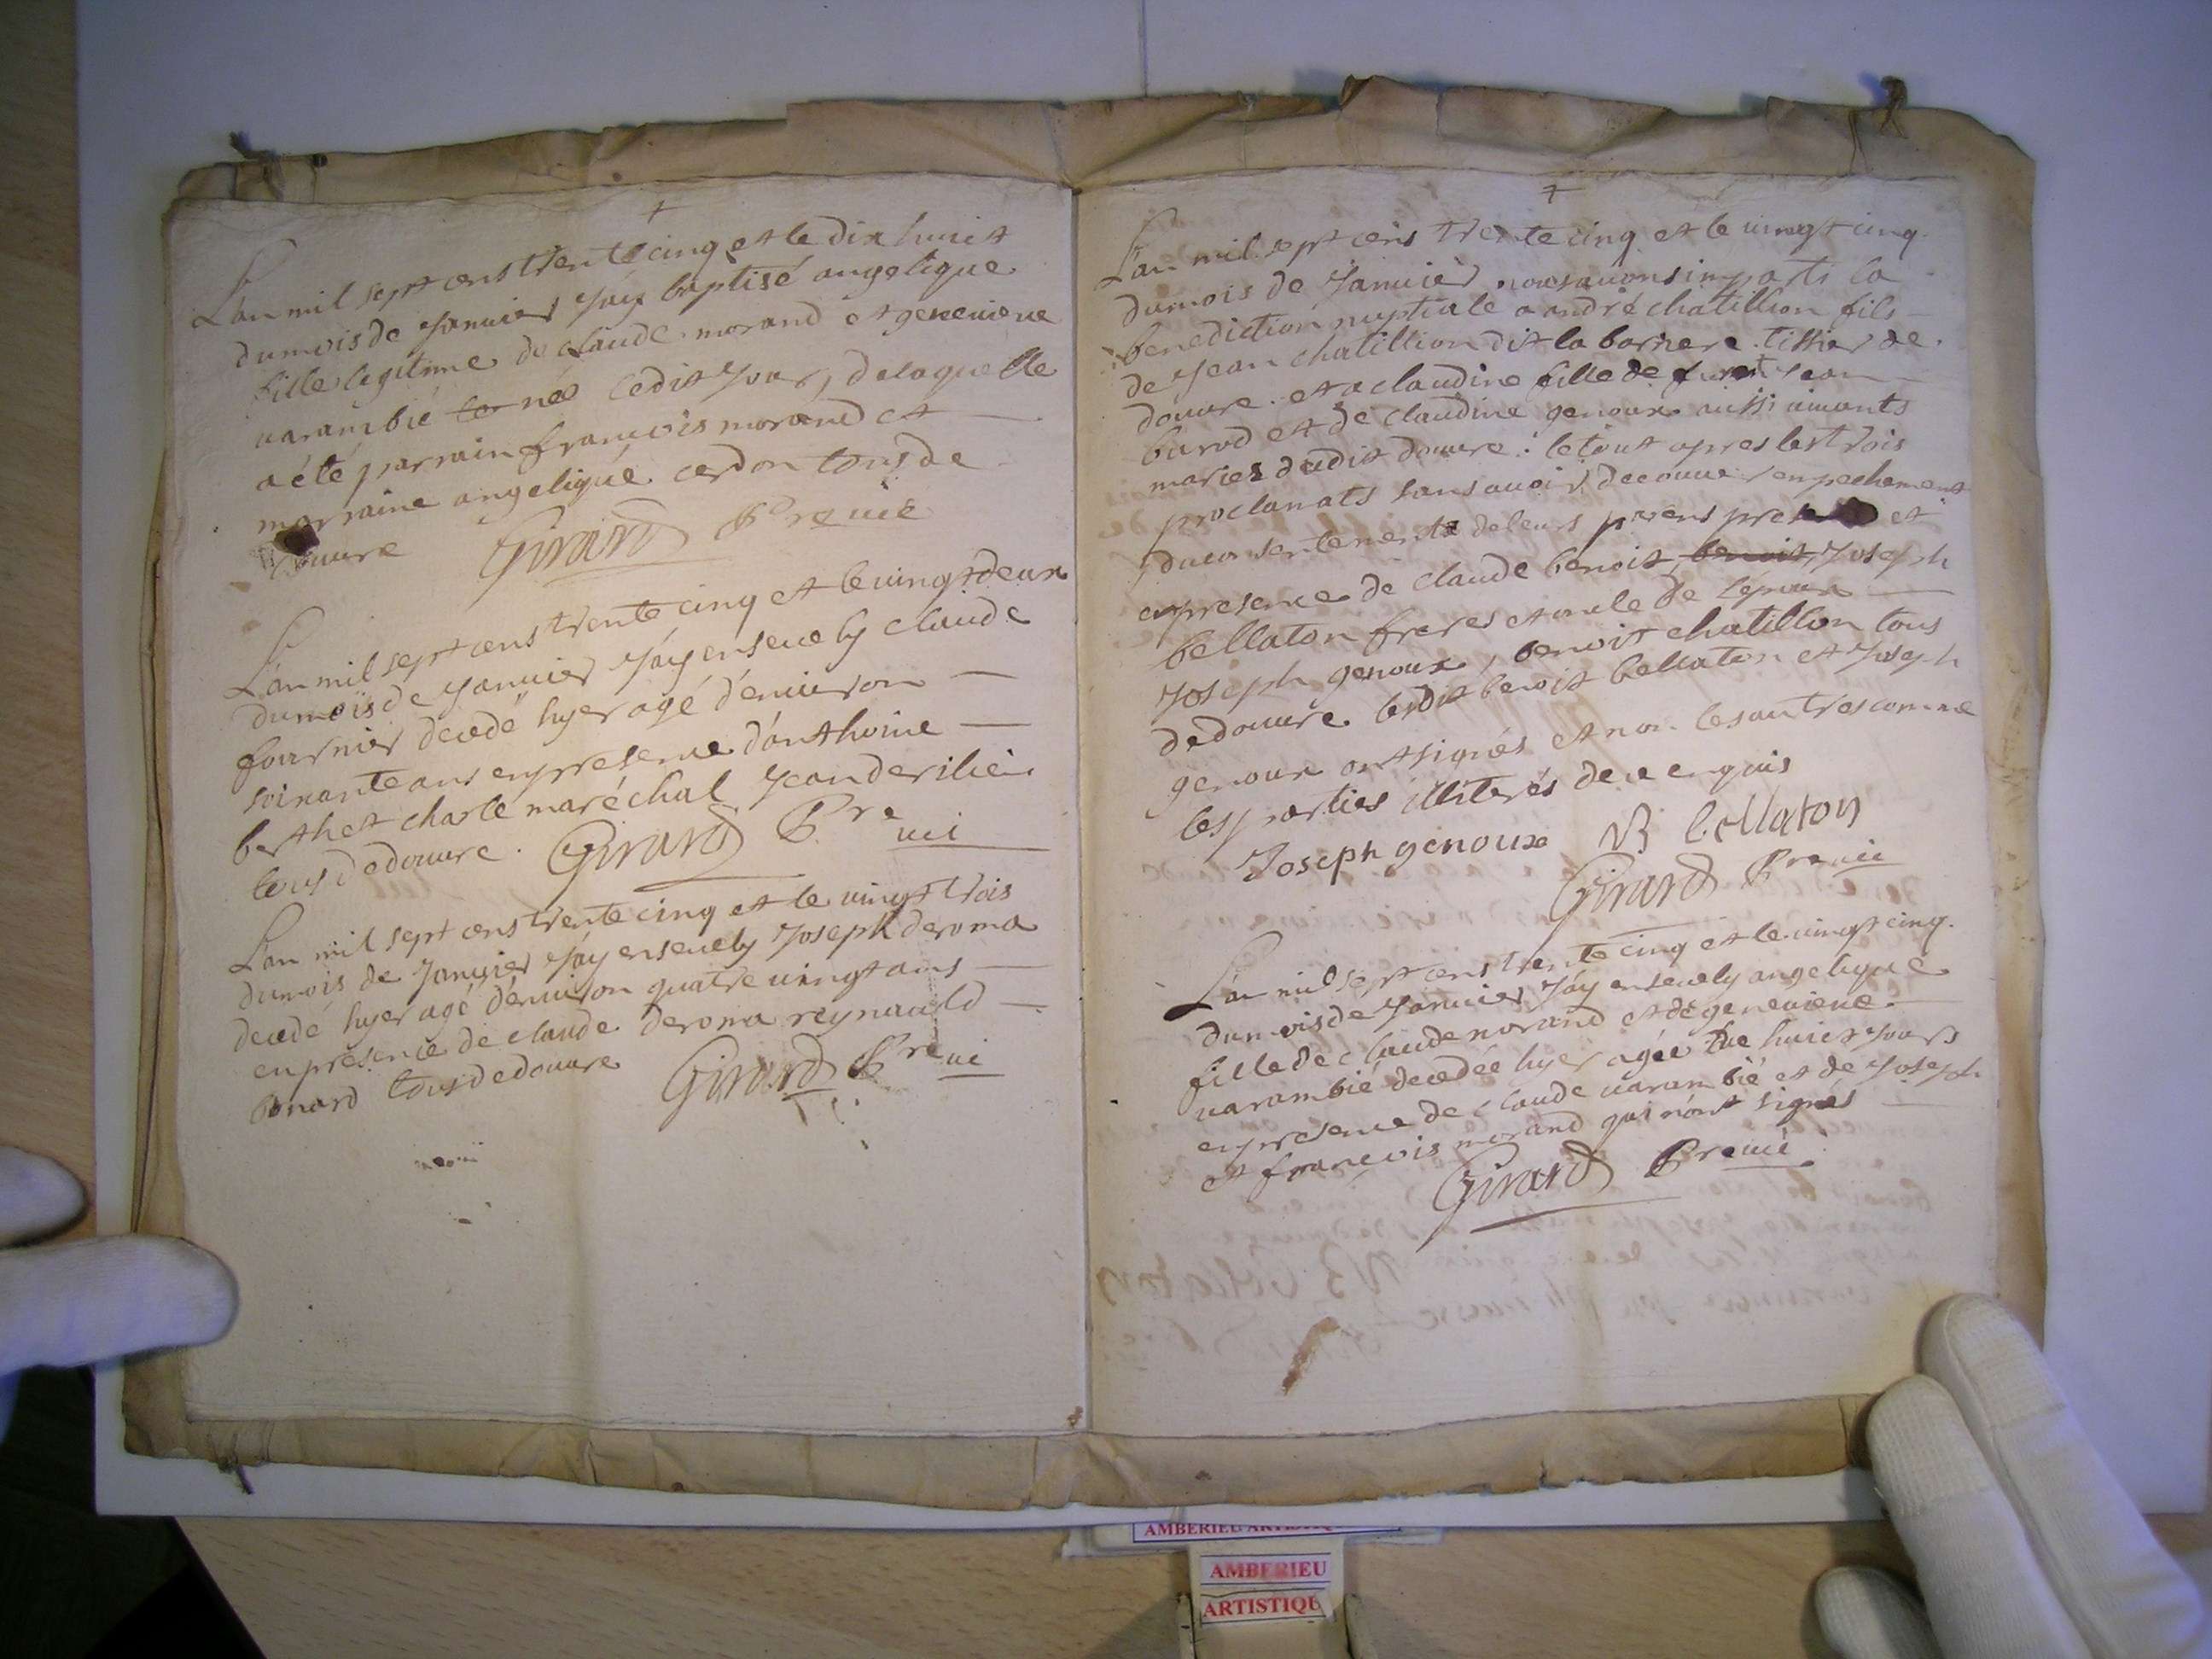 L'an mil sept cens trente cinq et le dix huict
du mois de Janvier J'ay baptisé angelique
fille legitime de claude morand et genevieve
varambié née ledit Jour, de laquelle
a été parrain francois morand et
marraine angelique cerdon tous de
douvre Girard Pre vié
L'an mil sept cens trente cinq et le vingt deux
du mois de Janvier J'ay ensevely claude
fournier decedé hyer agé d'environ
soixante ans en presence d'anthoine
berthet charle maréchal Jean derilieu
tous de douvre. Girard Pre vi
L'an mil sept cens trente cinq et le vingt trois
du mois de Janvier J'ay ensevely Joseph deroma
decedé hyer agé d'environ quatre vingt ans
en presence de claude deroma reynauld
bonard tous de douvre Girard Pre vi
L'an mil sept cens trente cinq et le vingt cinq
du mois de Janvier nous avons imparti la
benediction nuptiale a andré chatillion fils
de Jean chatillion dit la barriere tissier de
douvre et a claudine fille de Jean
burod et de claudine genoux aussi vivants
mariez dudit douvre : le tout apres les trois
proclamats sans avoir decouver empechement
du consentement de leurs parens et
en presence de claude benoit, benoit, Joseph
bellaton freres et oncle de l'epoux
Joseph genoux, benoit chatillon tous
de douvre ledit benoit bellaton et Joseph
genoux ont signés et non les autres comme
les parties illiterés de ce enquis
Joseph genoux B bellaton
Girard Pre vié
L'an mil sept cens trente cinq et le vingt cinq
du mois de Janvier J'ay ensevely angelique
fille de claude morand et de genevieve
varambié decedée hyer agée de huict Jours
en presence de claude varambié et de Joseph
et francois morand qui n'ont signés
Girard Pre vié
AMBERIEU ARTISTIQ
AMBERIEU
ARTISTIQUE